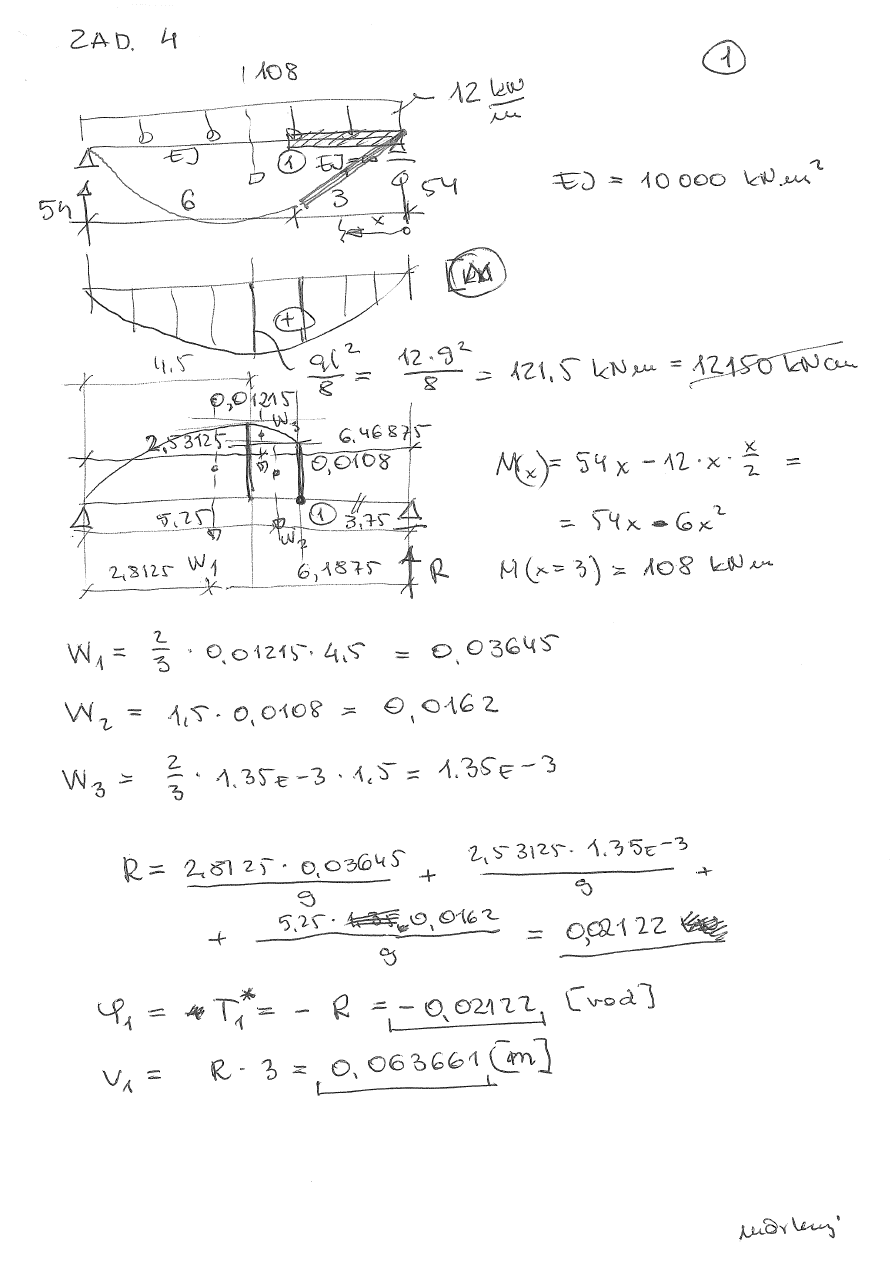 ZAD. 4
1
108
12 kN/m
EJ
1
EJ=∞
EJ = 10 000 kNm²
54
6
3
54
x
M
+
4,5
ql²/8 = 12·9²/8 = 121,5 kNm = 12150 kNcm
0,01215
W3
2,53125
6.46875
0,0108
M(x) = 54x - 12·x·x/2 =
= 54x - 6x²
5,25
1
3,75
W2
2,8125
W1
6,1875
R
M(x=3) = 108 kNm
W1 = 2/3 · 0,01215 · 4,5 = 0,03645
W2 = 1,5 · 0,0108 = 0,0162
W3 = 2/3 · 1.35E-3 · 1,5 = 1.35E-3
R = 2,8125 · 0,03645/9 + 2,53125 · 1.35E-3/9 +
+ 5,25 · 0,0162/9 = 0,02122
φ1 = T1* = - R = - 0,02122 [rad]
v1 = R · 3 = 0,063661 [m]